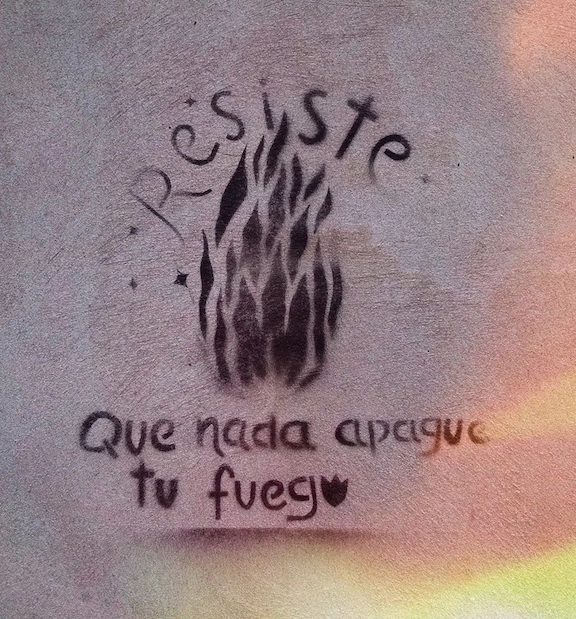 Resiste
Que nada apague
tu fuego